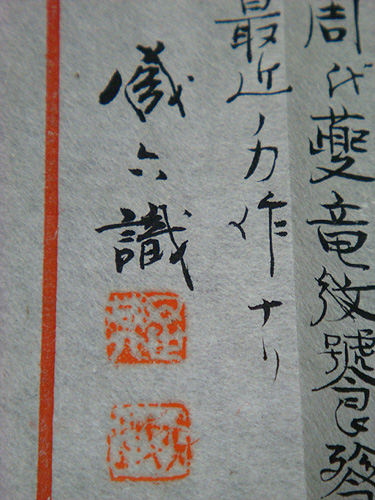 周代夔竜紋饕餮
最近ノ力作ナリ
蔵六識